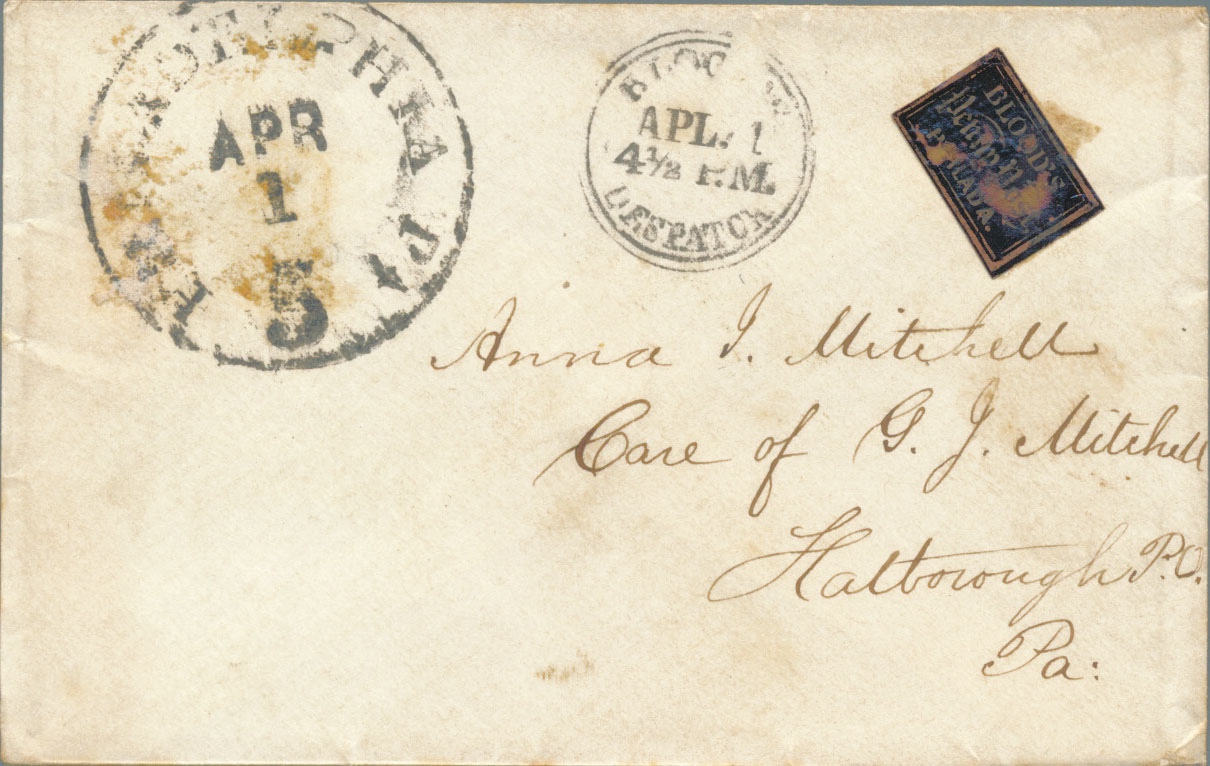 PHILADELPHIA PA
APR
1
5
BLOOD'S
APL. 1
4½ P.M.
DESPATCH
BLOOD'S
Penny Post
PHILADA.
Anna J. Mitchell
Care of G. J. Mitchell
Hatborough P.O.
Pa: